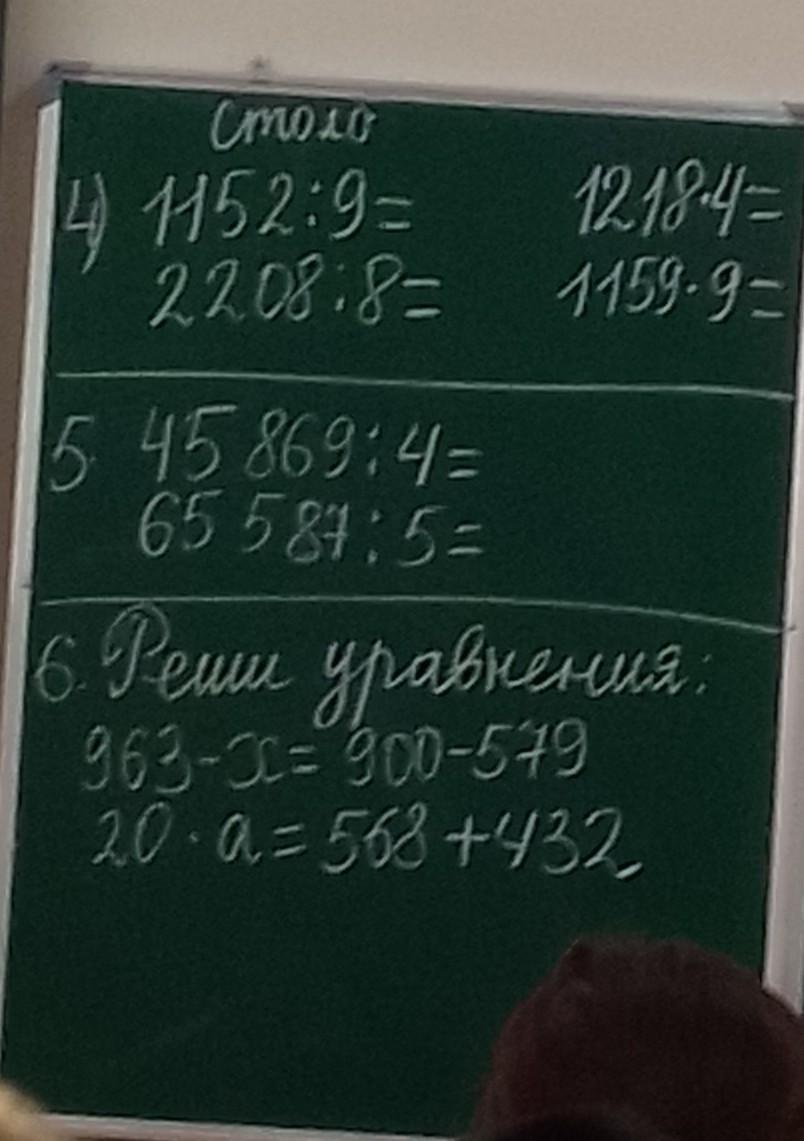 столб
4) 1152:9= 1218·4=
2208:8= 1159·9=
5 45 869:4=
65 587:5=
6. Реши уравнения:
963-x=900-579
20·a=568+432